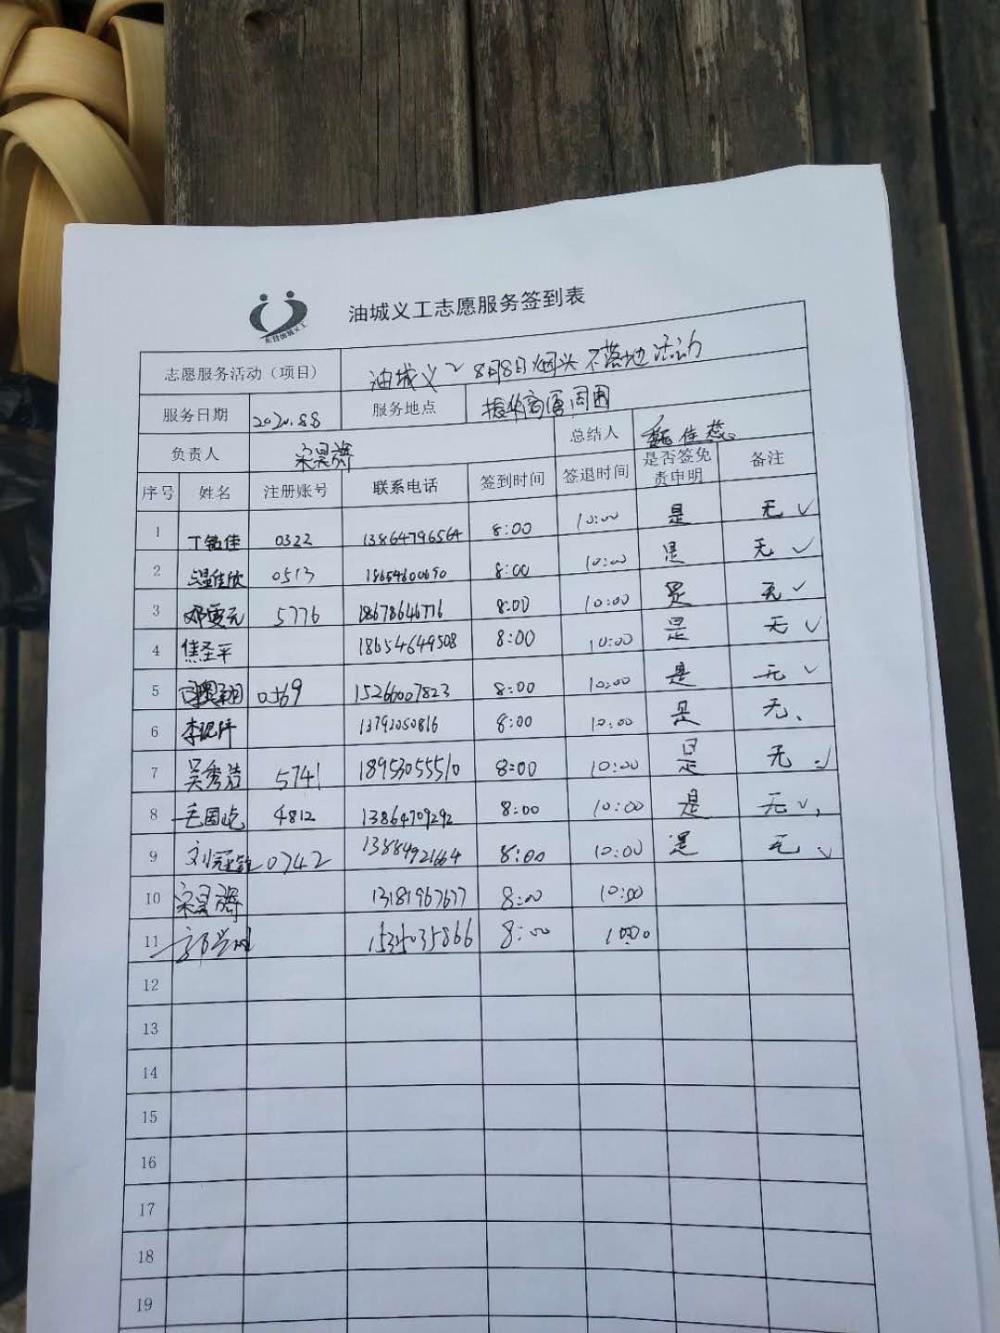 油城义工志愿服务签到表
志愿服务活动（项目） 油城义工8月8日烟头不落地活动
服务日期 2020.8.8 服务地点 振华商厦周围
负责人 宋昊 总结人 魏佳蕊
序号 姓名 注册账号 联系电话 签到时间 签退时间 是否签免责申明 备注
1 丁铭佳 0322 13864796564 8:00 10:00 是 无 ✓
2 温佳欣 0513 18654600690 8:00 10:00 是 无 ✓
3 邓雯元 5776 18678646776 8:00 10:00 是 无 ✓
4 焦圣平 18654649508 8:00 10:00 是 无 ✓
5 0569 15266007823 8:00 10:00 是 无 ✓
6 李 13792050816 8:00 10:00 是 无
7 吴秀洁 5741 18953055510 8:00 10:00 是 无 ✓
8 毛国屹 4812 13864709292 8:00 10:00 是 无 ✓
9 刘冠 0742 13884921664 8:00 10:00 是 无 ✓
10 宋昊 13181967677 8:00 10:00
11 8:00 10:00
12
13
14
15
16
17
18
19